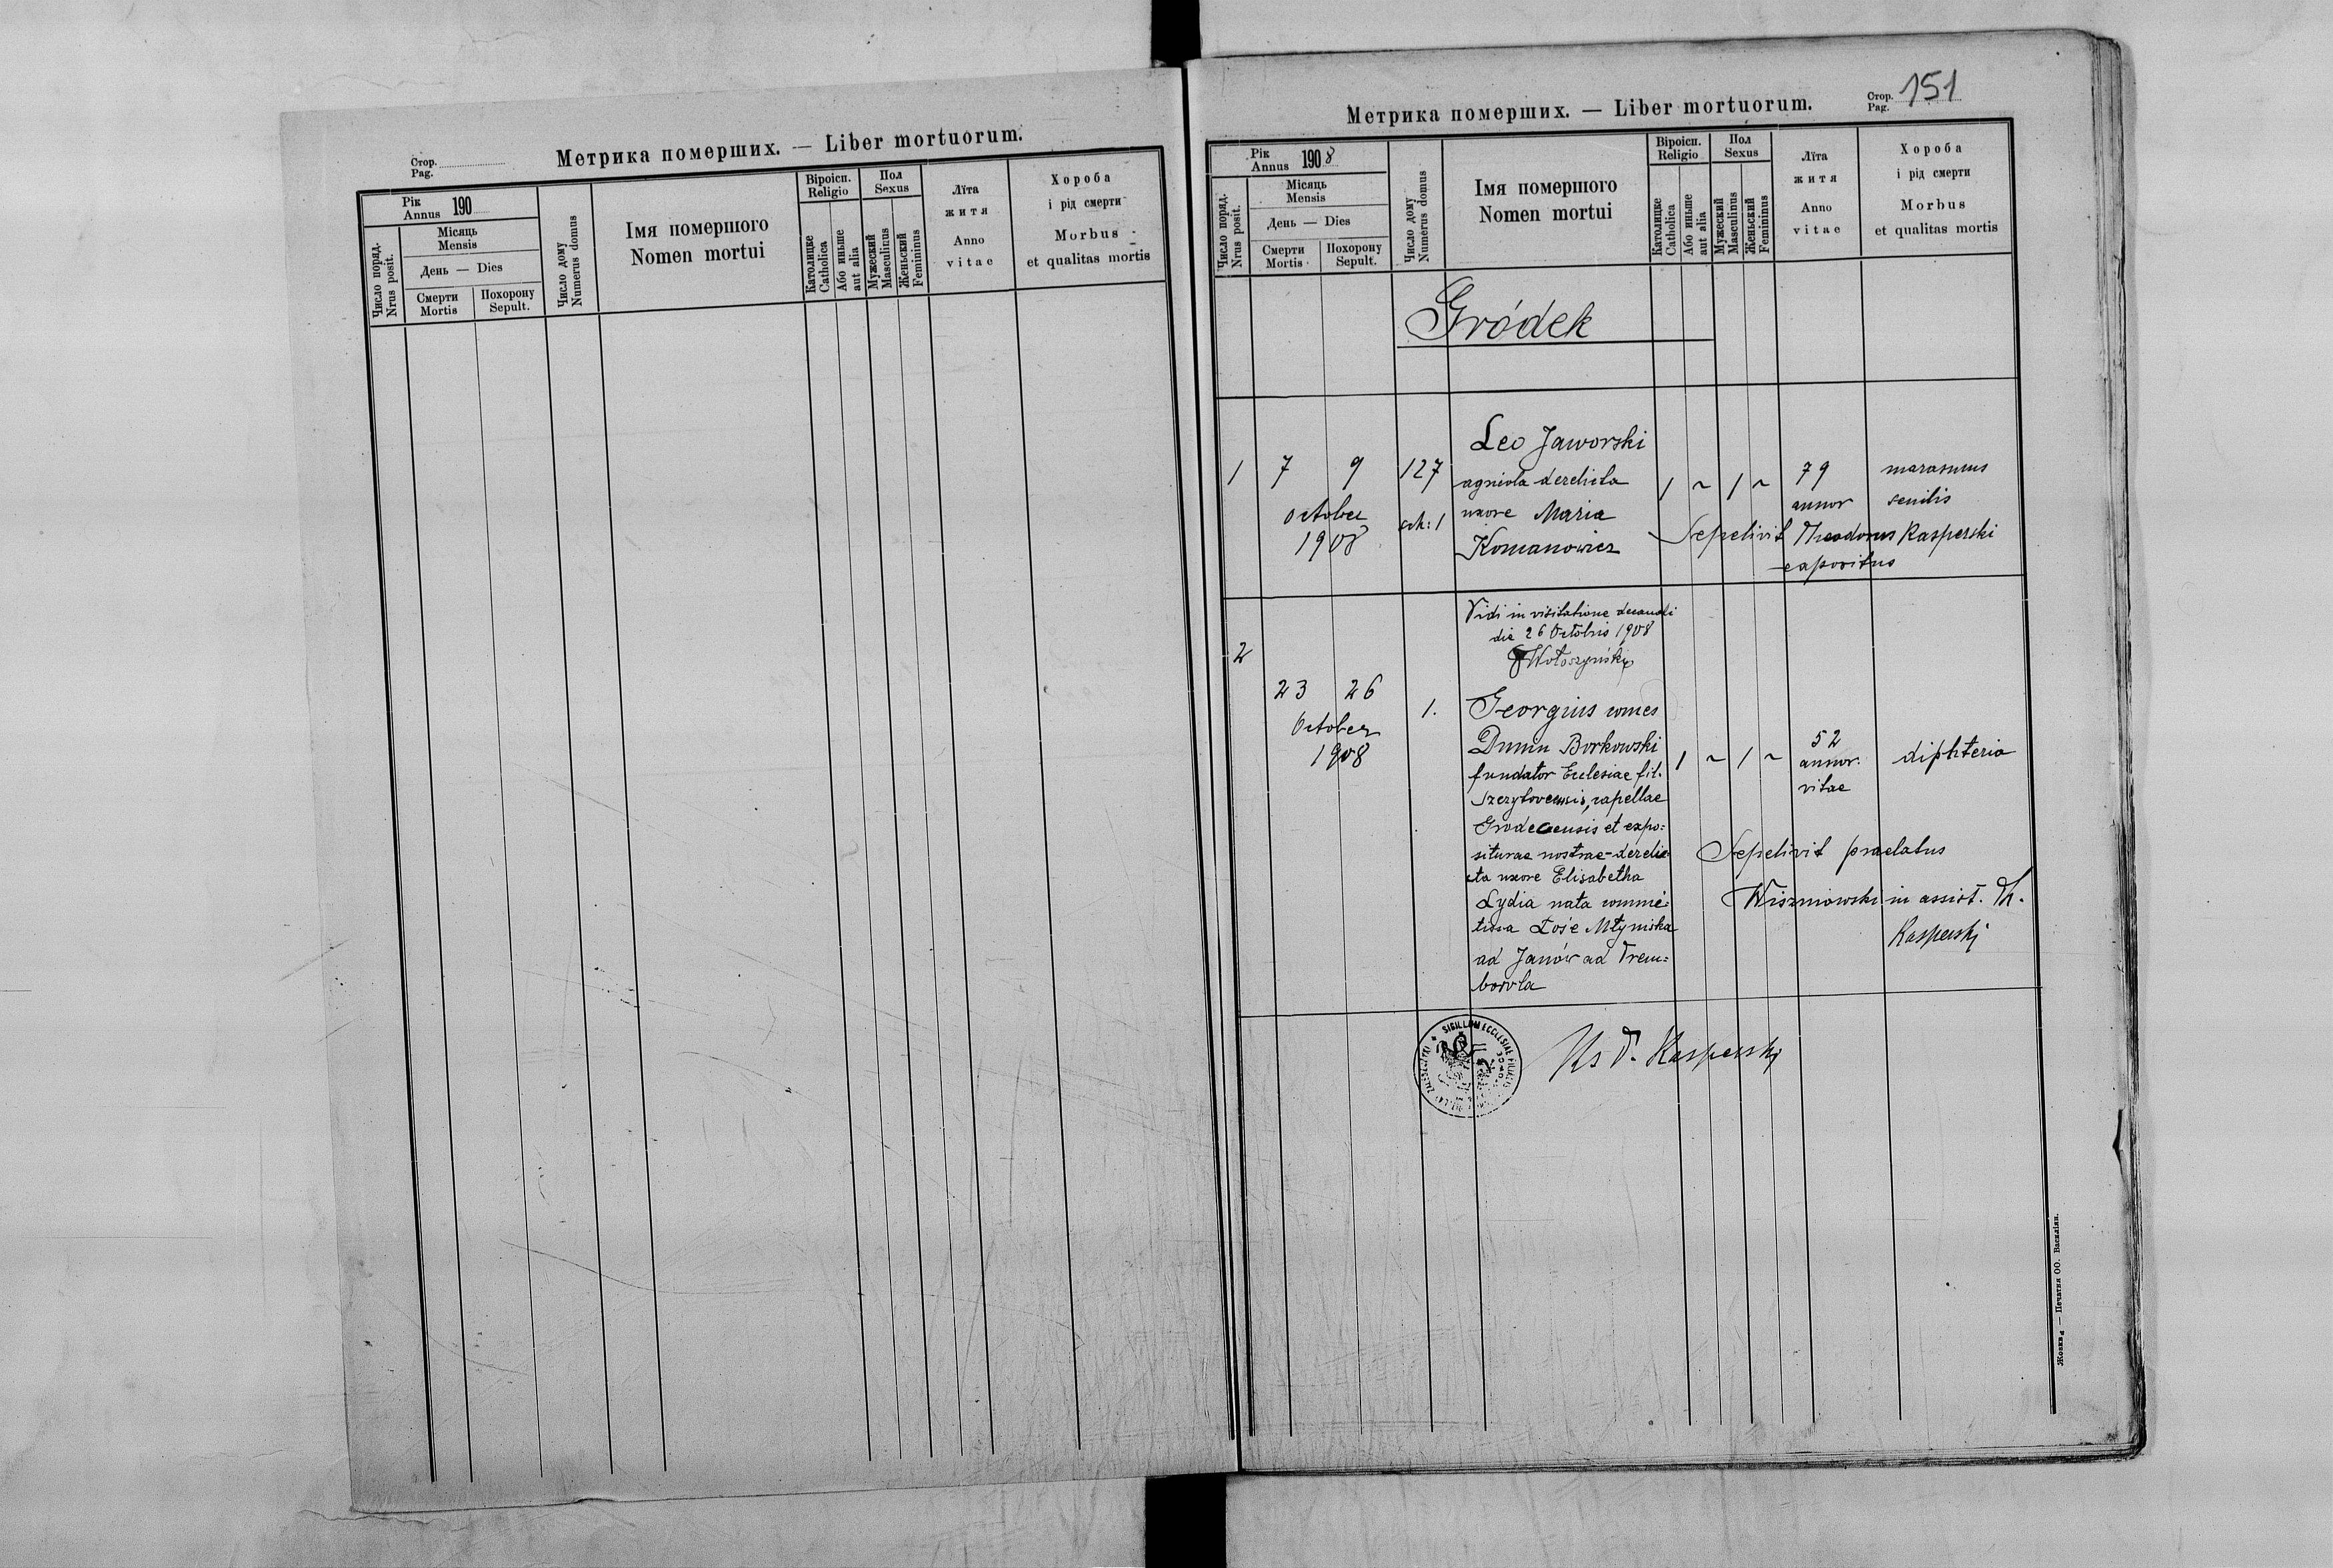 Стор.
Pag.
Метрика померших. — Liber mortuorum.
Рік
Annus 190
Місяць
Mensis
День — Dies
Число поряд.
Nrus posit.
Смерти
Mortis
Похорону
Sepult.
Число дому
Numerus domus
Імя помершого
Nomen mortui
Віроісп.
Religio
Католицке
Catholica
Або иньше
aut alia
Пол
Sexus
Мужеский
Masculinus
Женьский
Femininus
Лїта
житя
Anno
vitae
Хороба
і рід смерти
Morbus
et qualitas mortis
Метрика померших. — Liber mortuorum.
Стор.
Pag. 151
Рік
Annus 1908
Місяць
Mensis
День — Dies
Число поряд.
Nrus posit.
Смерти
Mortis
Похорону
Sepult.
Число дому
Numerus domus
Імя помершого
Nomen mortui
Віроісп.
Religio
Католицке
Catholica
Або иньше
aut alia
Пол
Sexus
Мужеский
Masculinus
Женьский
Femininus
Лїта
житя
Anno
vitae
Хороба
і рід смерти
Morbus
et qualitas mortis
Gródek
1 7 9 127
October sch: 1
1908
Leo Jaworski
agricola derelicta
uxore Maria
Komanowicz
1 ~ 1 ~ 79 marasmus
annor senilis
Sepelivit Theodorus Kasperski
expositus
Vidi in visitatione decanali
die 26 Octobris 1908
Wołoszyński
2
23 26 1.
October
1908
Georgius comes
Dunin Borkowski
fundator Ecclesiae fil.
Szczytovensis, capellae
Grodecensis et expo=
siturae nostrae - dereli
cta uxore Elisabetha
Lydia nata commi=
tissa Łoś é Młyniska
ad Janów ad Trem=
bowla
1 ~ 1 ~ 52 diphteria
annor.
vitae
Sepelivit praelatus
Wiszniowski in assist. Th.
Kasperski
SIGILLUM ECCLESIAE FILIALIS
Ks T. Kasperski
Жовква — Печатня ОО. Василіян.